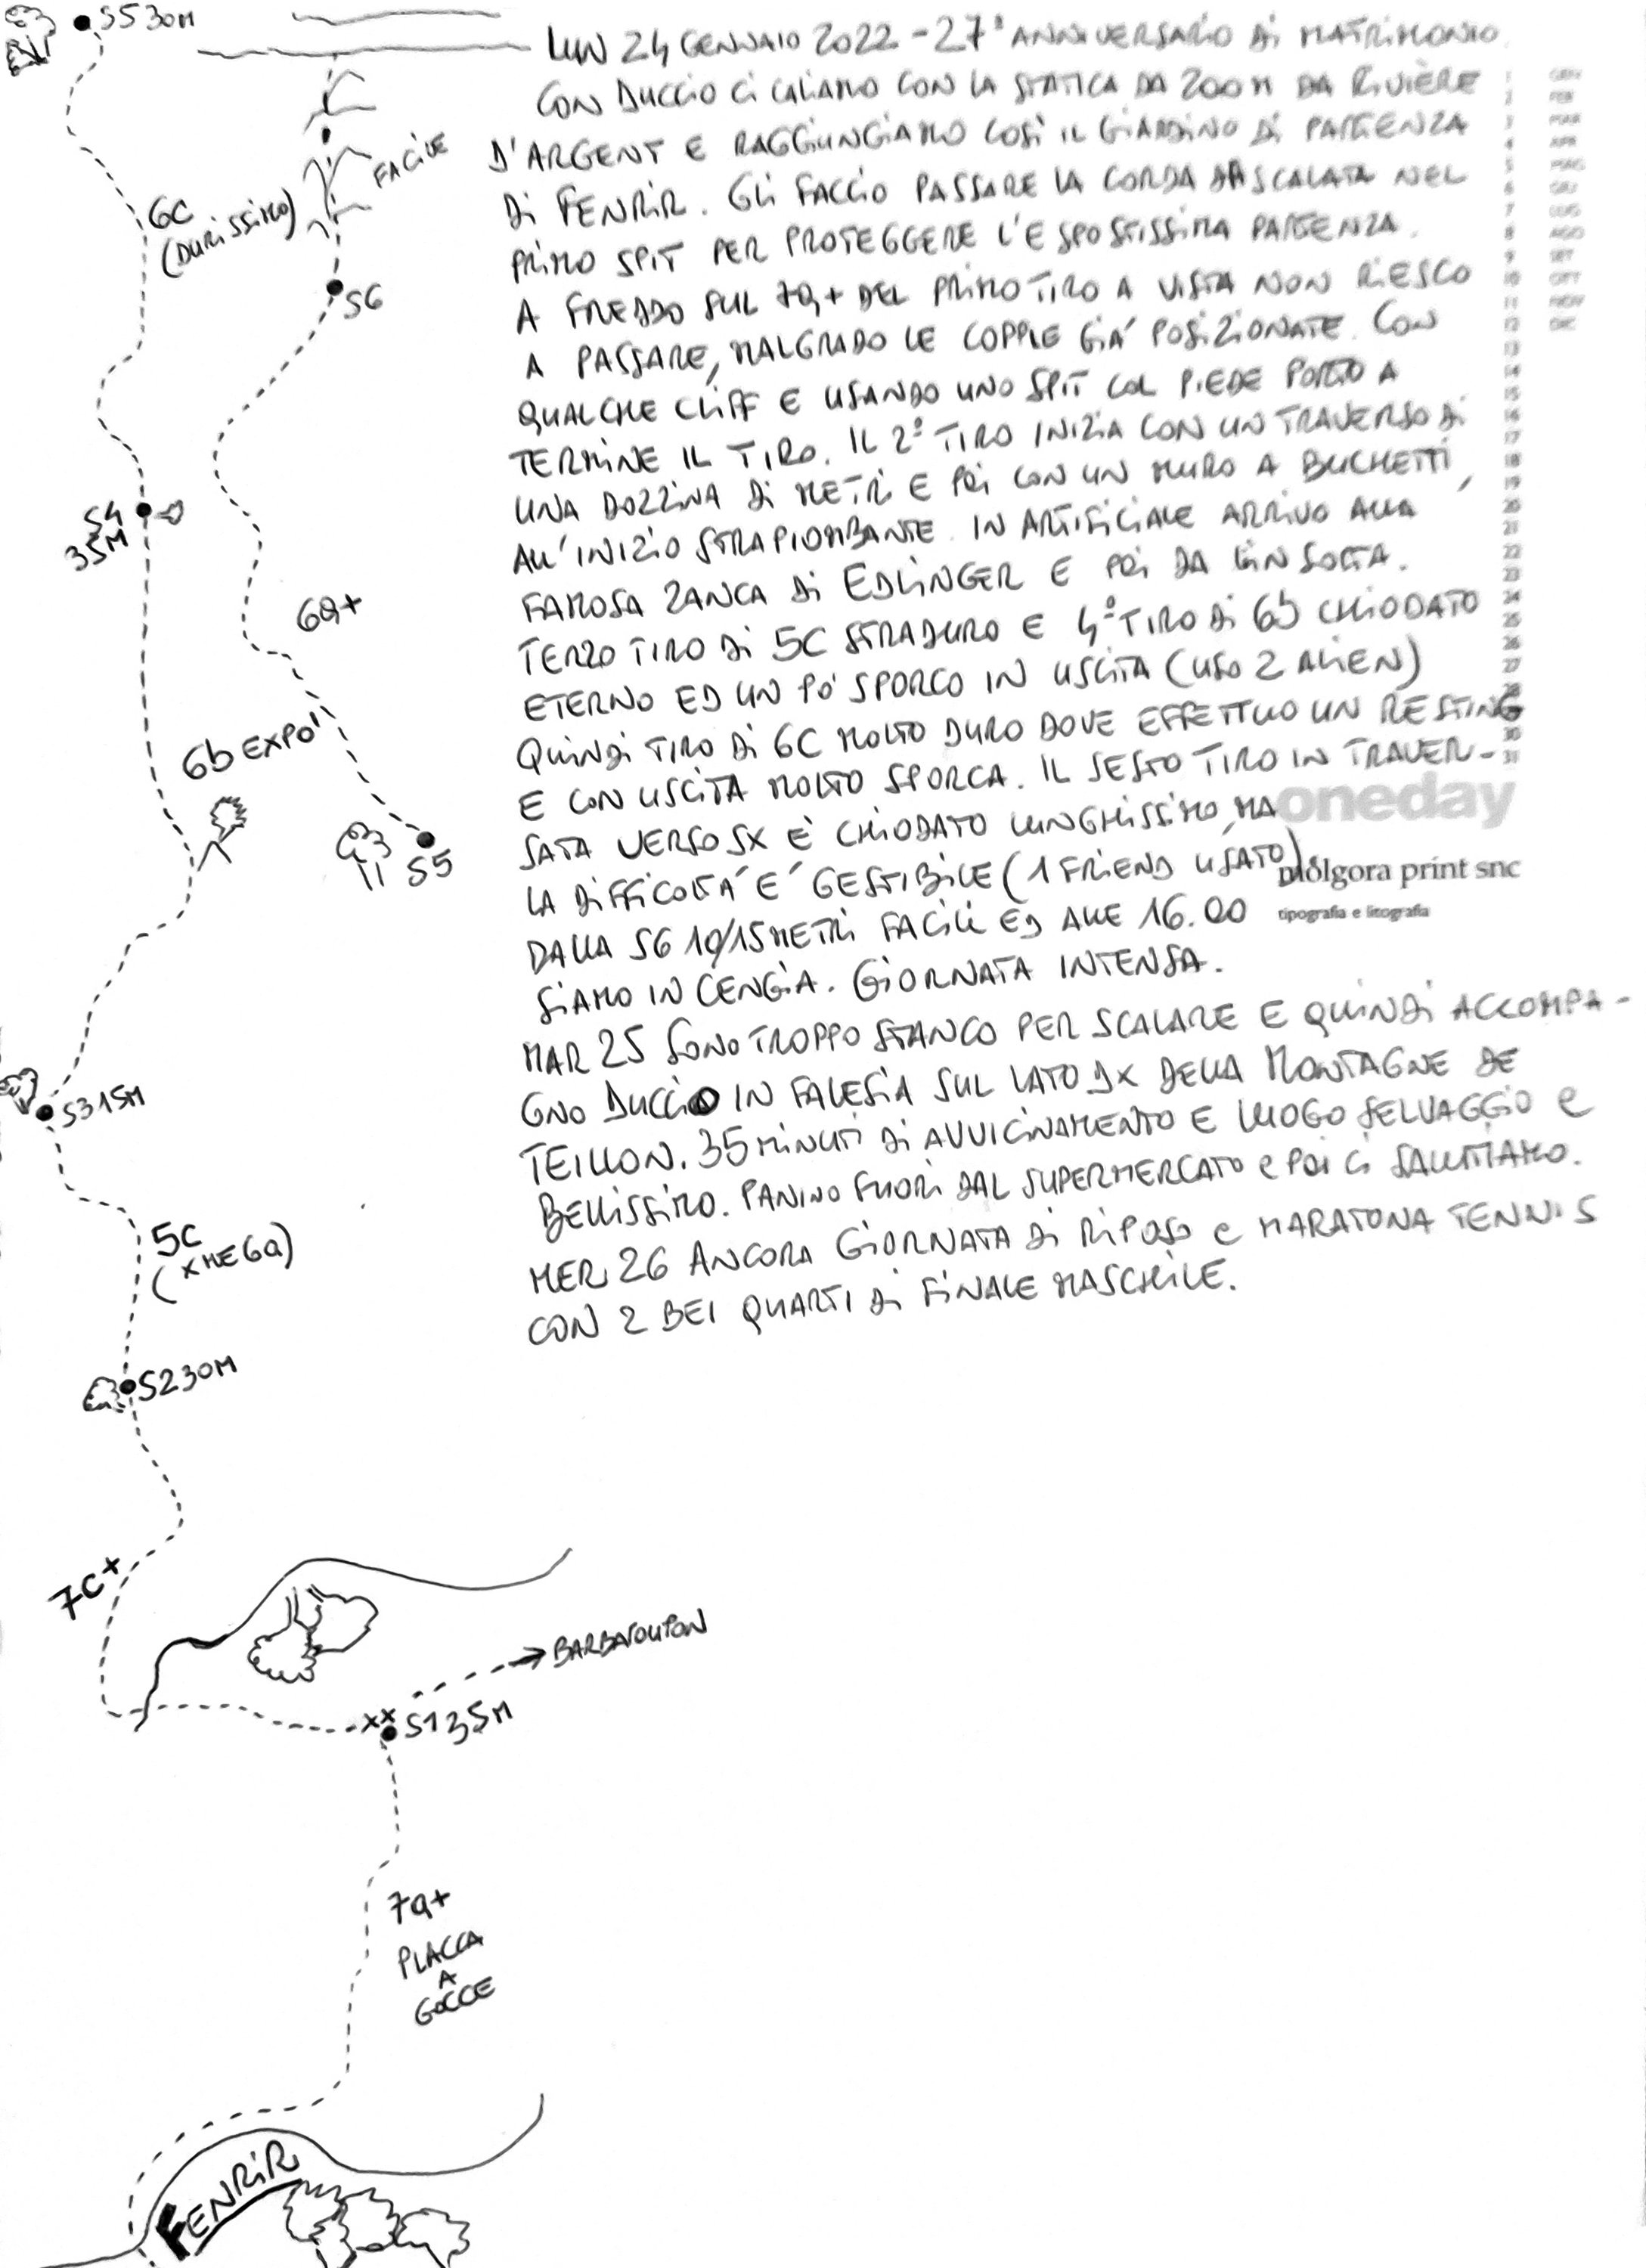 S5 30M
6C
(DURISSIMO)
FACILE
S6
S4
35M
6a+
6b EXPO'
S5
S3 15M
5C
(X ME 6a)
S2 30M
7C+
BARBAPOUPON
XX
S1 35M
7a+
PLACCA
A
GOCCE
FENRIR
LUN 24 GENNAIO 2022 - 27° ANNIVERSARIO DI MATRIMONIO.
CON DUCCIO CI CALIAMO CON LA STATICA DA 200M DA RIVIÈRE
D'ARGENT E RAGGIUNGIAMO COSÌ IL GIARDINO DI PARTENZA
DI FENRIR. GLI FACCIO PASSARE LA CORDA DA SCALATA NEL
PRIMO SPIT PER PROTEGGERE L'ESPOSTISSIMA PARTENZA.
A FREDDO SUL 7a+ DEL PRIMO TIRO A VISTA NON RIESCO
A PASSARE, MALGRADO LE COPPIE GIA' POSIZIONATE. CON
QUALCHE CLIFF E USANDO UNO SPIT COL PIEDE PORTO A
TERMINE IL TIRO. IL 2° TIRO INIZIA CON UN TRAVERSO DI
UNA DOZZINA DI METRI E POI CON UN MURO A BUCHETTI,
ALL'INIZIO STRAPIOMBANTE. IN ARTIFICIALE ARRIVO ALLA
FAMOSA ZANCA DI EDLINGER E POI DA LÌ IN SOSTA.
TERZO TIRO DI 5C STRADURO E 4° TIRO DI 6b CHIODATO
ETERNO ED UN PO' SPORCO IN USCITA (USO 2 ALIEN)
QUINDI TIRO DI 6C MOLTO DURO DOVE EFFETTUO UN RESTING
E CON USCITA MOLTO SPORCA. IL SESTO TIRO IN TRAVER-
SATA VERSO SX È CHIODATO LUNGHISSIMO, MA
LA DIFFICOLTA' E' GESTIBILE (1 FRIEND USATO).
DALLA S6 10/15 METRI FACILI ED ALLE 16.00
SIAMO IN CENGIA. GIORNATA INTENSA.
MAR 25 SONO TROPPO STANCO PER SCALARE E QUINDI ACCOMPA-
GNO DUCCIO IN FALESIA SUL LATO DX DELLA MONTAGNE DE
TEILLON. 35 MINUTI DI AVVICINAMENTO E LUOGO SELVAGGIO e
BELLISSIMO. PANINO FUORI DAL SUPERMERCATO e POI CI SALUTIAMO.
MER 26 ANCORA GIORNATA DI RIPOSO e MARATONA TENNIS
CON 2 BEI QUARTI DI FINALE MASCHILE.
1 GEN
2 FEB
3 MAR
4 APR
5 MAG
6 GIU
7 LUG
8 AGO
9 SET
10 OTT
11 NOV
12 DIC
13
14
15
16
17
18
19
20
21
22
23
24
25
26
27
28
30
31
oneday
molgora print snc
tipografia e litografia